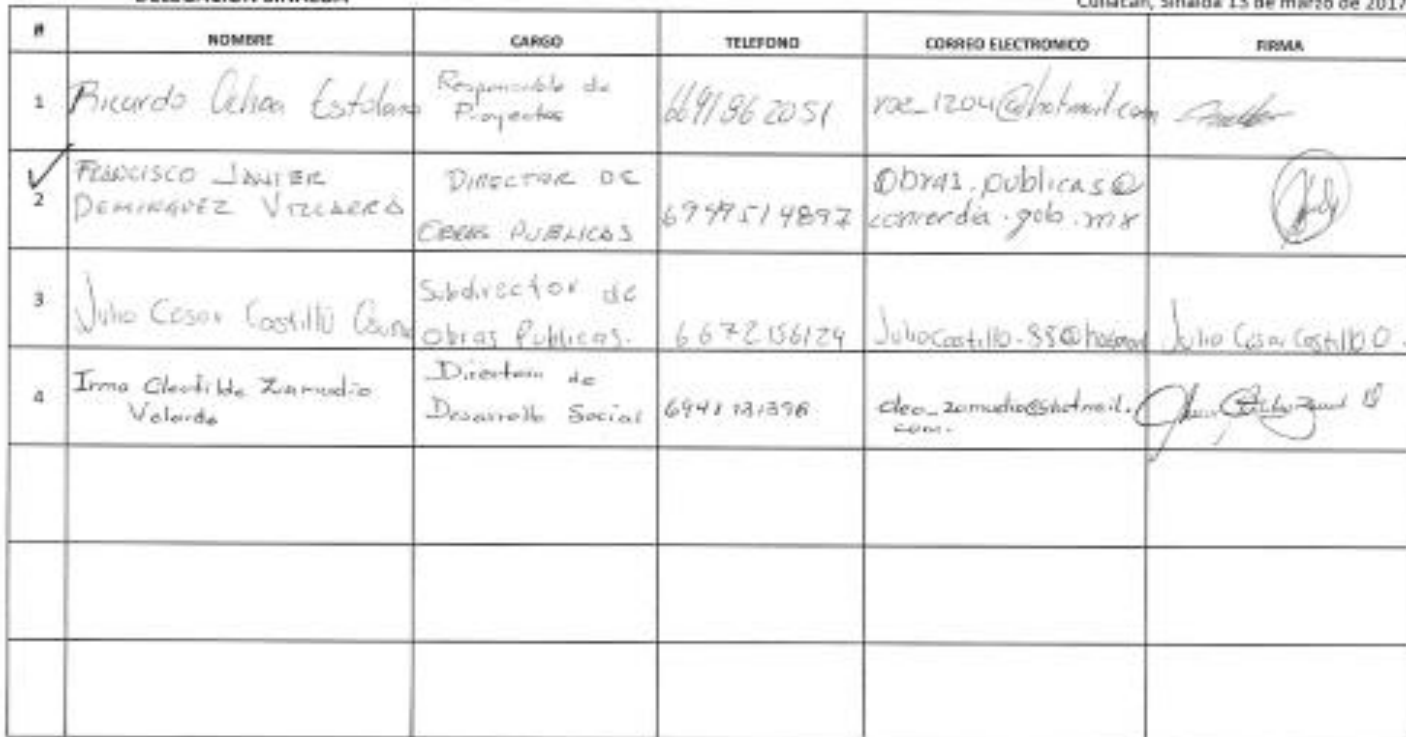 Culiacán, Sinaloa 13 de marzo de 2017
# NOMBRE CARGO TELEFONO CORREO ELECTRONICO FIRMA
1 Ricardo Ochoa Estolano Responsable de Proyectos 6691862051 roe_1204@hotmail.com
2 FRANCISCO JAVIER
DIRECTOR DE
OBRAS PUBLICAS
Obras.publicas@
concordia.gob.mx
3 Julio Cesar Castillo
Subdirector de
Obras Publicas. 6672156124 Julio Cesar Castillo O.
4 Irma Cleotilde Zamudio
Velarde
Directora de
Desarrollo Social
cleo_zamudio@hotmail.
com.